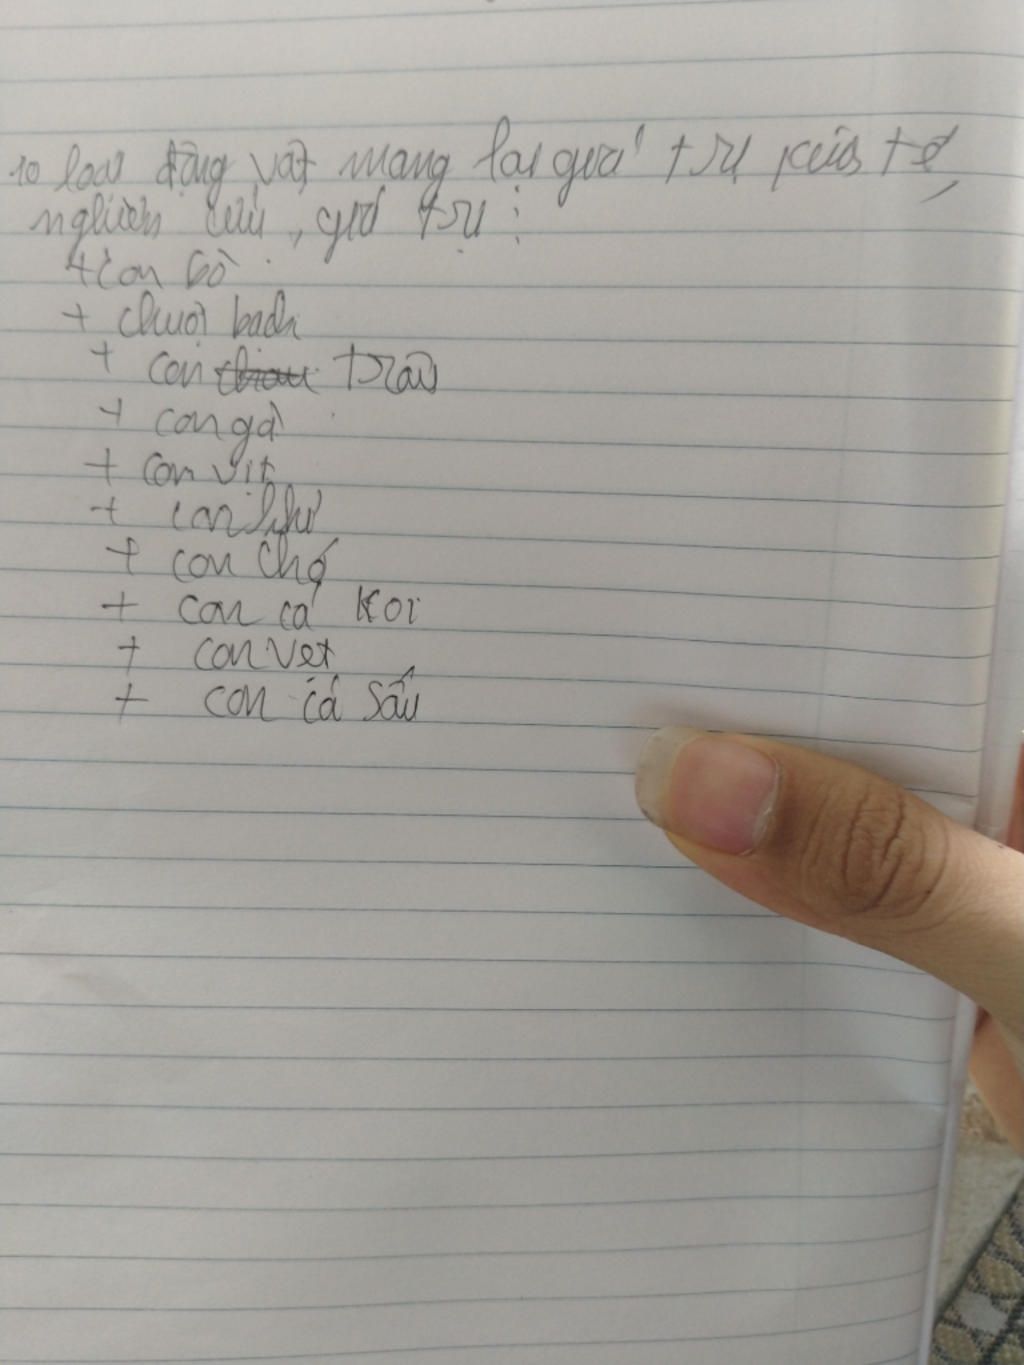 10 loài động vật mang lại giá trị kinh tế,
nghiên cứu, giá trị:
+ con bò
+ chuột bạch
+ con trâu
+ con gà
+ con vịt
+ con khỉ
+ con chó
+ con cá Koi
+ con vẹt
+ con cá sấu